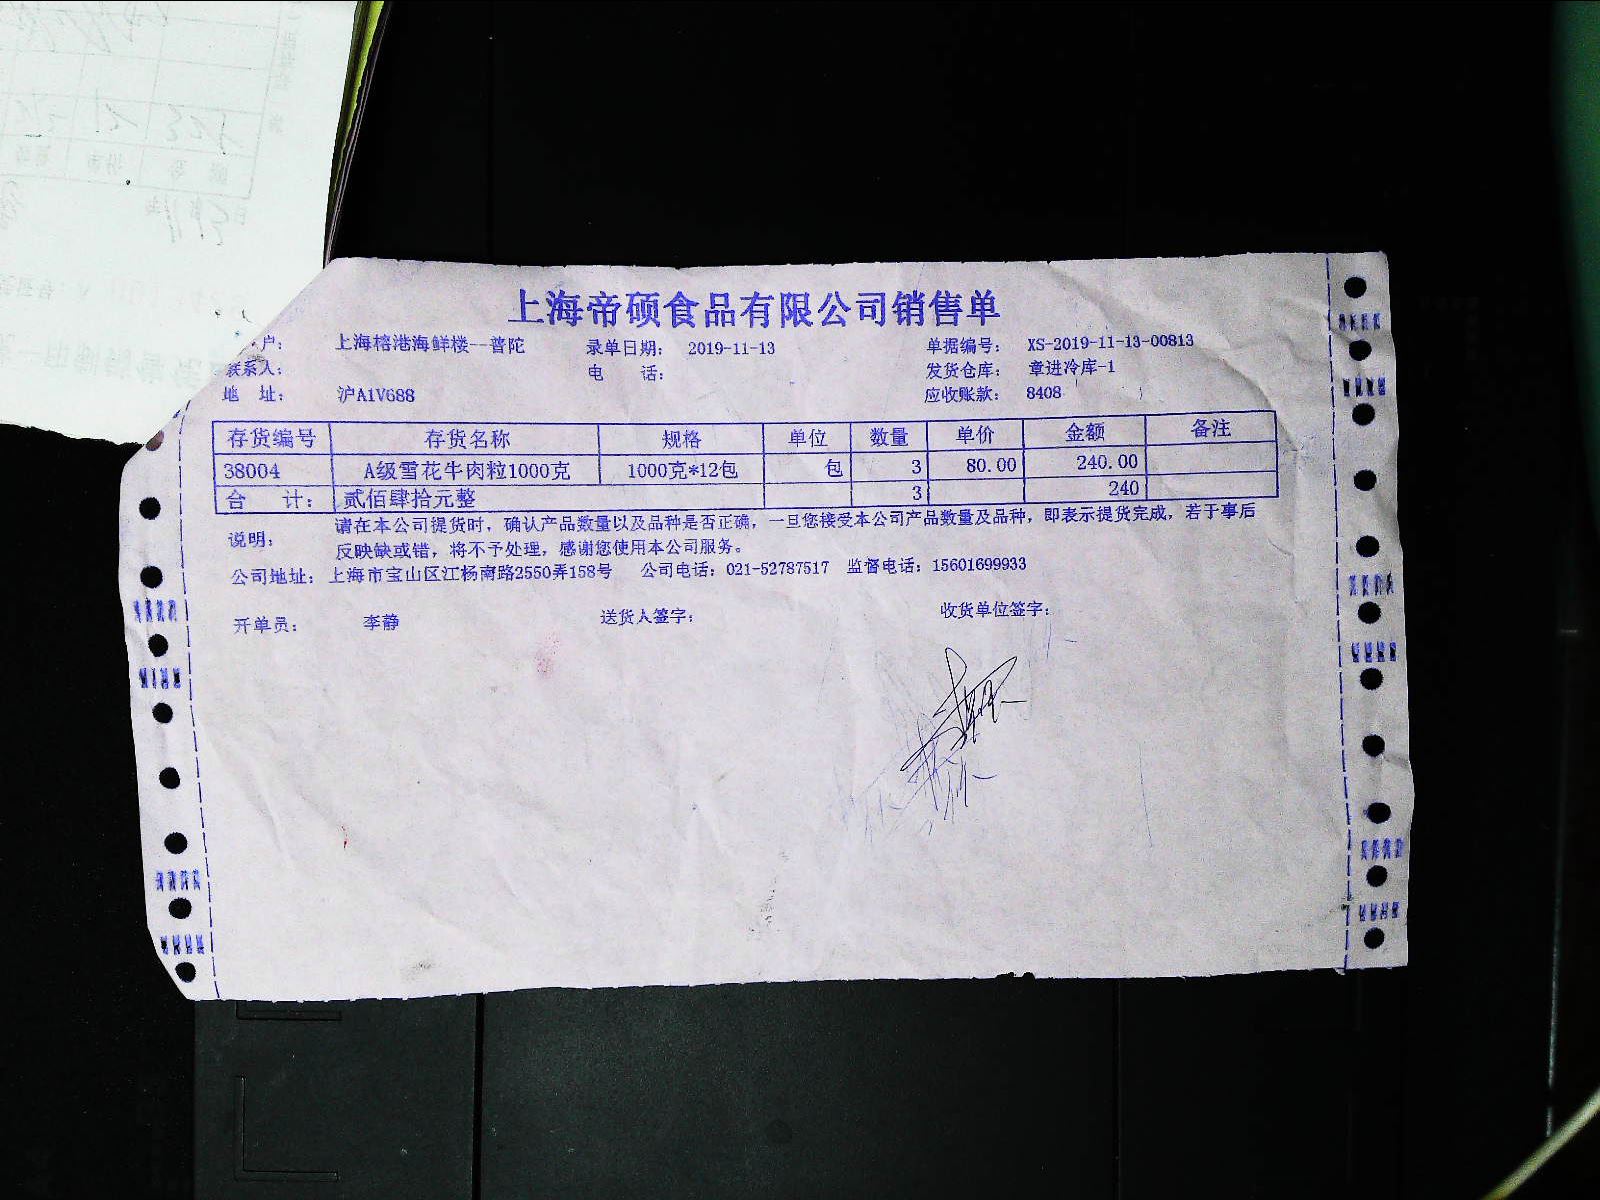 上海帝硕食品有限公司销售单
户： 上海榕港海鲜楼--普陀 录单日期： 2019-11-13 单据编号： XS-2019-11-13-00813
联系人： 电 话： 发货仓库： 章进冷库-1
地 址： 沪A1V688 应收账款： 8408
存货编号 存货名称 规格 单位 数量 单价 金额 备注
38004 A级雪花牛肉粒1000克 1000克*12包 包 3 80.00 240.00
合 计： 贰佰肆拾元整 3 240
说明： 请在本公司提货时，确认产品数量以及品种是否正确，一旦您接受本公司产品数量及品种，即表示提货完成，若于事后
反映缺或错，将不予处理，感谢您使用本公司服务。
公司地址： 上海市宝山区江杨南路2550弄158号 公司电话：021-52787517 监督电话：15601699933
开单员： 李静 送货人签字： 收货单位签字：